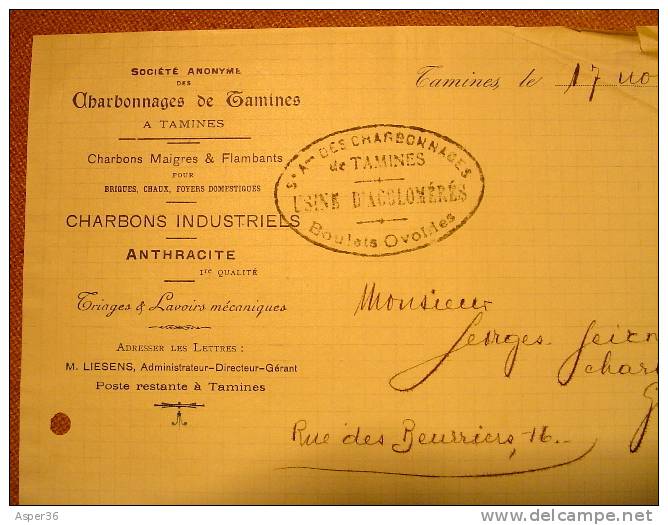 SOCIÉTÉ ANONYME
DES
Charbonnages de Tamines
A TAMINES
Charbons Maigres & Flambants
POUR
BRIQUES, CHAUX, FOYERS DOMESTIQUES
CHARBONS INDUSTRIELS
ANTHRACITE
Ire QUALITÉ
Triages & Lavoirs mécaniques
ADRESSER LES LETTRES :
M. LIESENS, Administrateur-Directeur-Gérant
Poste restante à Tamines
Tamines, le 17 no
Sté Ame DES CHARBONNAGES
de TAMINES
USINE D'AGGLOMÉRÉS
Boulets Ovoïdes
Monsieur
Georges
char
Rue des Beurriers, 16
Asper36
www.delcampe.net